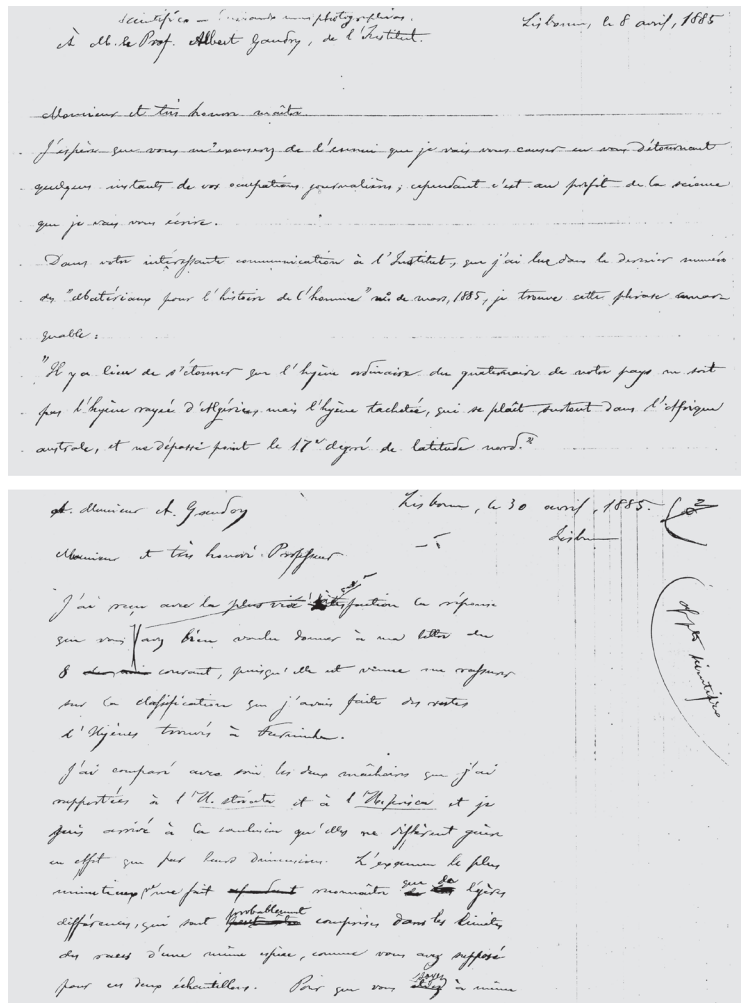 scientifica — photographias.
À M. le Prof. Albert Gaudry, de l'Institut.
Lisbonne, le 8 avril, 1885
Monsieur et très honoré maître
J'espère que vous m'excuserez de l'ennui que je vais vous causer en vous détournant
quelques instants de vos occupations journalières; cependant c'est au profit de la science
que je vais vous écrire.
Dans votre intéressante communication à l'Institut, que j'ai lue dans le dernier numéro
des "Matériaux pour l'histoire de l'homme" de mars, 1885, je trouve cette phrase remar-
quable:
"Il y a lieu de s'étonner que l'hyène ordinaire du quaternaire de notre pays ne soit
pas l'hyène rayée d'Algérie, mais l'hyène tachetée, qui se plaît surtout dans l'Afrique
australe, et ne dépasse point le 17e degré de latitude nord."
A. Monsieur A. Gaudry
Lisbonne, le 30 avril, 1885.
Lisbonne
Monsieur et très honoré Professeur
J'ai reçu avec la plus vive satisfaction la réponse
que vous avez bien voulu donner à ma lettre du
8 courant, puisqu'elle est venue me rassurer
sur la classification que j'avais faite des restes
d'Hyènes trouvés à Furninha.
J'ai comparé avec soin les deux mâchoires que j'ai
rapportées à l'H. striata et à l'H. prisca et je
suis arrivé à la conclusion qu'elles ne diffèrent guère
en effet que par leurs dimensions. L'examen le plus
minutieux ne fait reconnaître que de légères
différences, qui sont probablement comprises dans les limites
des races d'une même espèce, comme vous avez supposé
pour ces deux échantillons. Pour que vous soyez à même